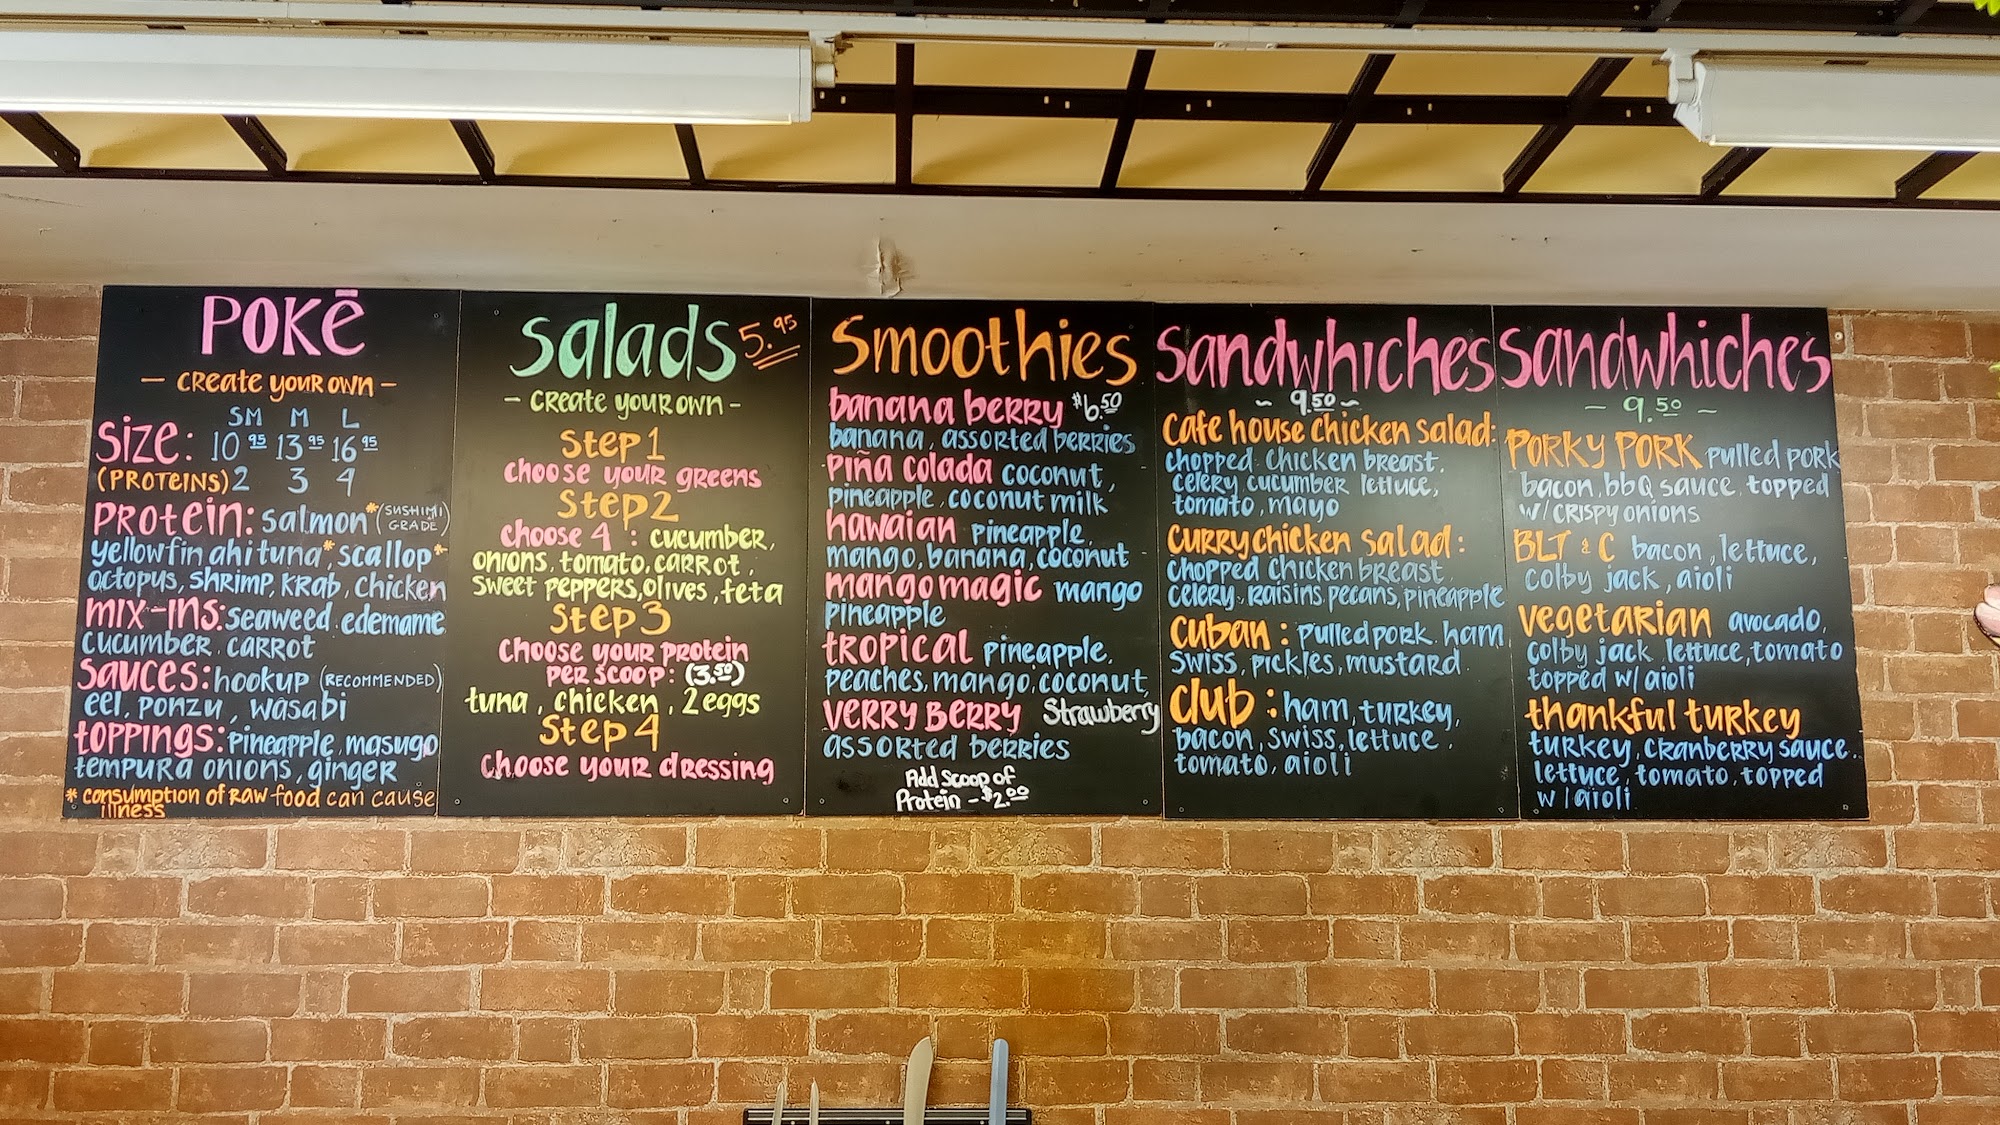 POKē
- CREATE YOUR OWN -
SM M L
Size: 10 95 13 95 16 95
(PROTEINS) 2 3 4
PROTEIN: salmon * (SUSHIMI GRADE)
yellowfin ahi tuna*, scallop*
octopus, shrimp, KRab, chicken
MIX-INS: seaweed, edemame
cucumber, carrot
SAUCES: hookup (RECOMMENDED)
eel, ponzu, wasabi
toppings: pineapple, masugo
tempura onions, ginger
* consumption of raw food can cause
illness
Salads 5.95
- CREATE YOUR OWN -
Step 1
choose your greens
Step 2
choose 4 : cucumber,
onions, tomato, carrot,
sweet peppers, olives, feta
Step 3
choose your protein
per scoop: (3.50)
tuna, chicken, 2 eggs
Step 4
choose your dressing
Smoothies
banana berry $6.50
banana, assorted berries
piña colada coconut,
pineapple, coconut milk
hawaian pineapple,
mango, banana, coconut
mango magic mango
pineapple
tropical pineapple,
peaches, mango, coconut,
VERRY BERRY Strawberry
assorted berries
Add scoop of
Protein - $2.00
Sandwhiches
~ 9.50 ~
Cafe house chicken salad:
chopped chicken breast,
celery cucumber lettuce,
tomato, mayo
curry chicken salad:
chopped chicken breast,
celery, raisins, pecans, pineapple
cuban: pulled pork, ham
swiss, pickles, mustard
club: ham, turkey,
bacon, swiss, lettuce,
tomato, aioli
Sandwhiches
- 9.50 ~
PORKY PORK pulled pork
bacon, bbQ sauce, topped
w/ crispy onions
BLT & C bacon, lettuce,
colby jack, aioli
vegetarian avocado,
colby jack, lettuce, tomato
topped w/ aioli
thankful turkey
turkey, cranberry sauce,
lettuce, tomato, topped
w/ aioli